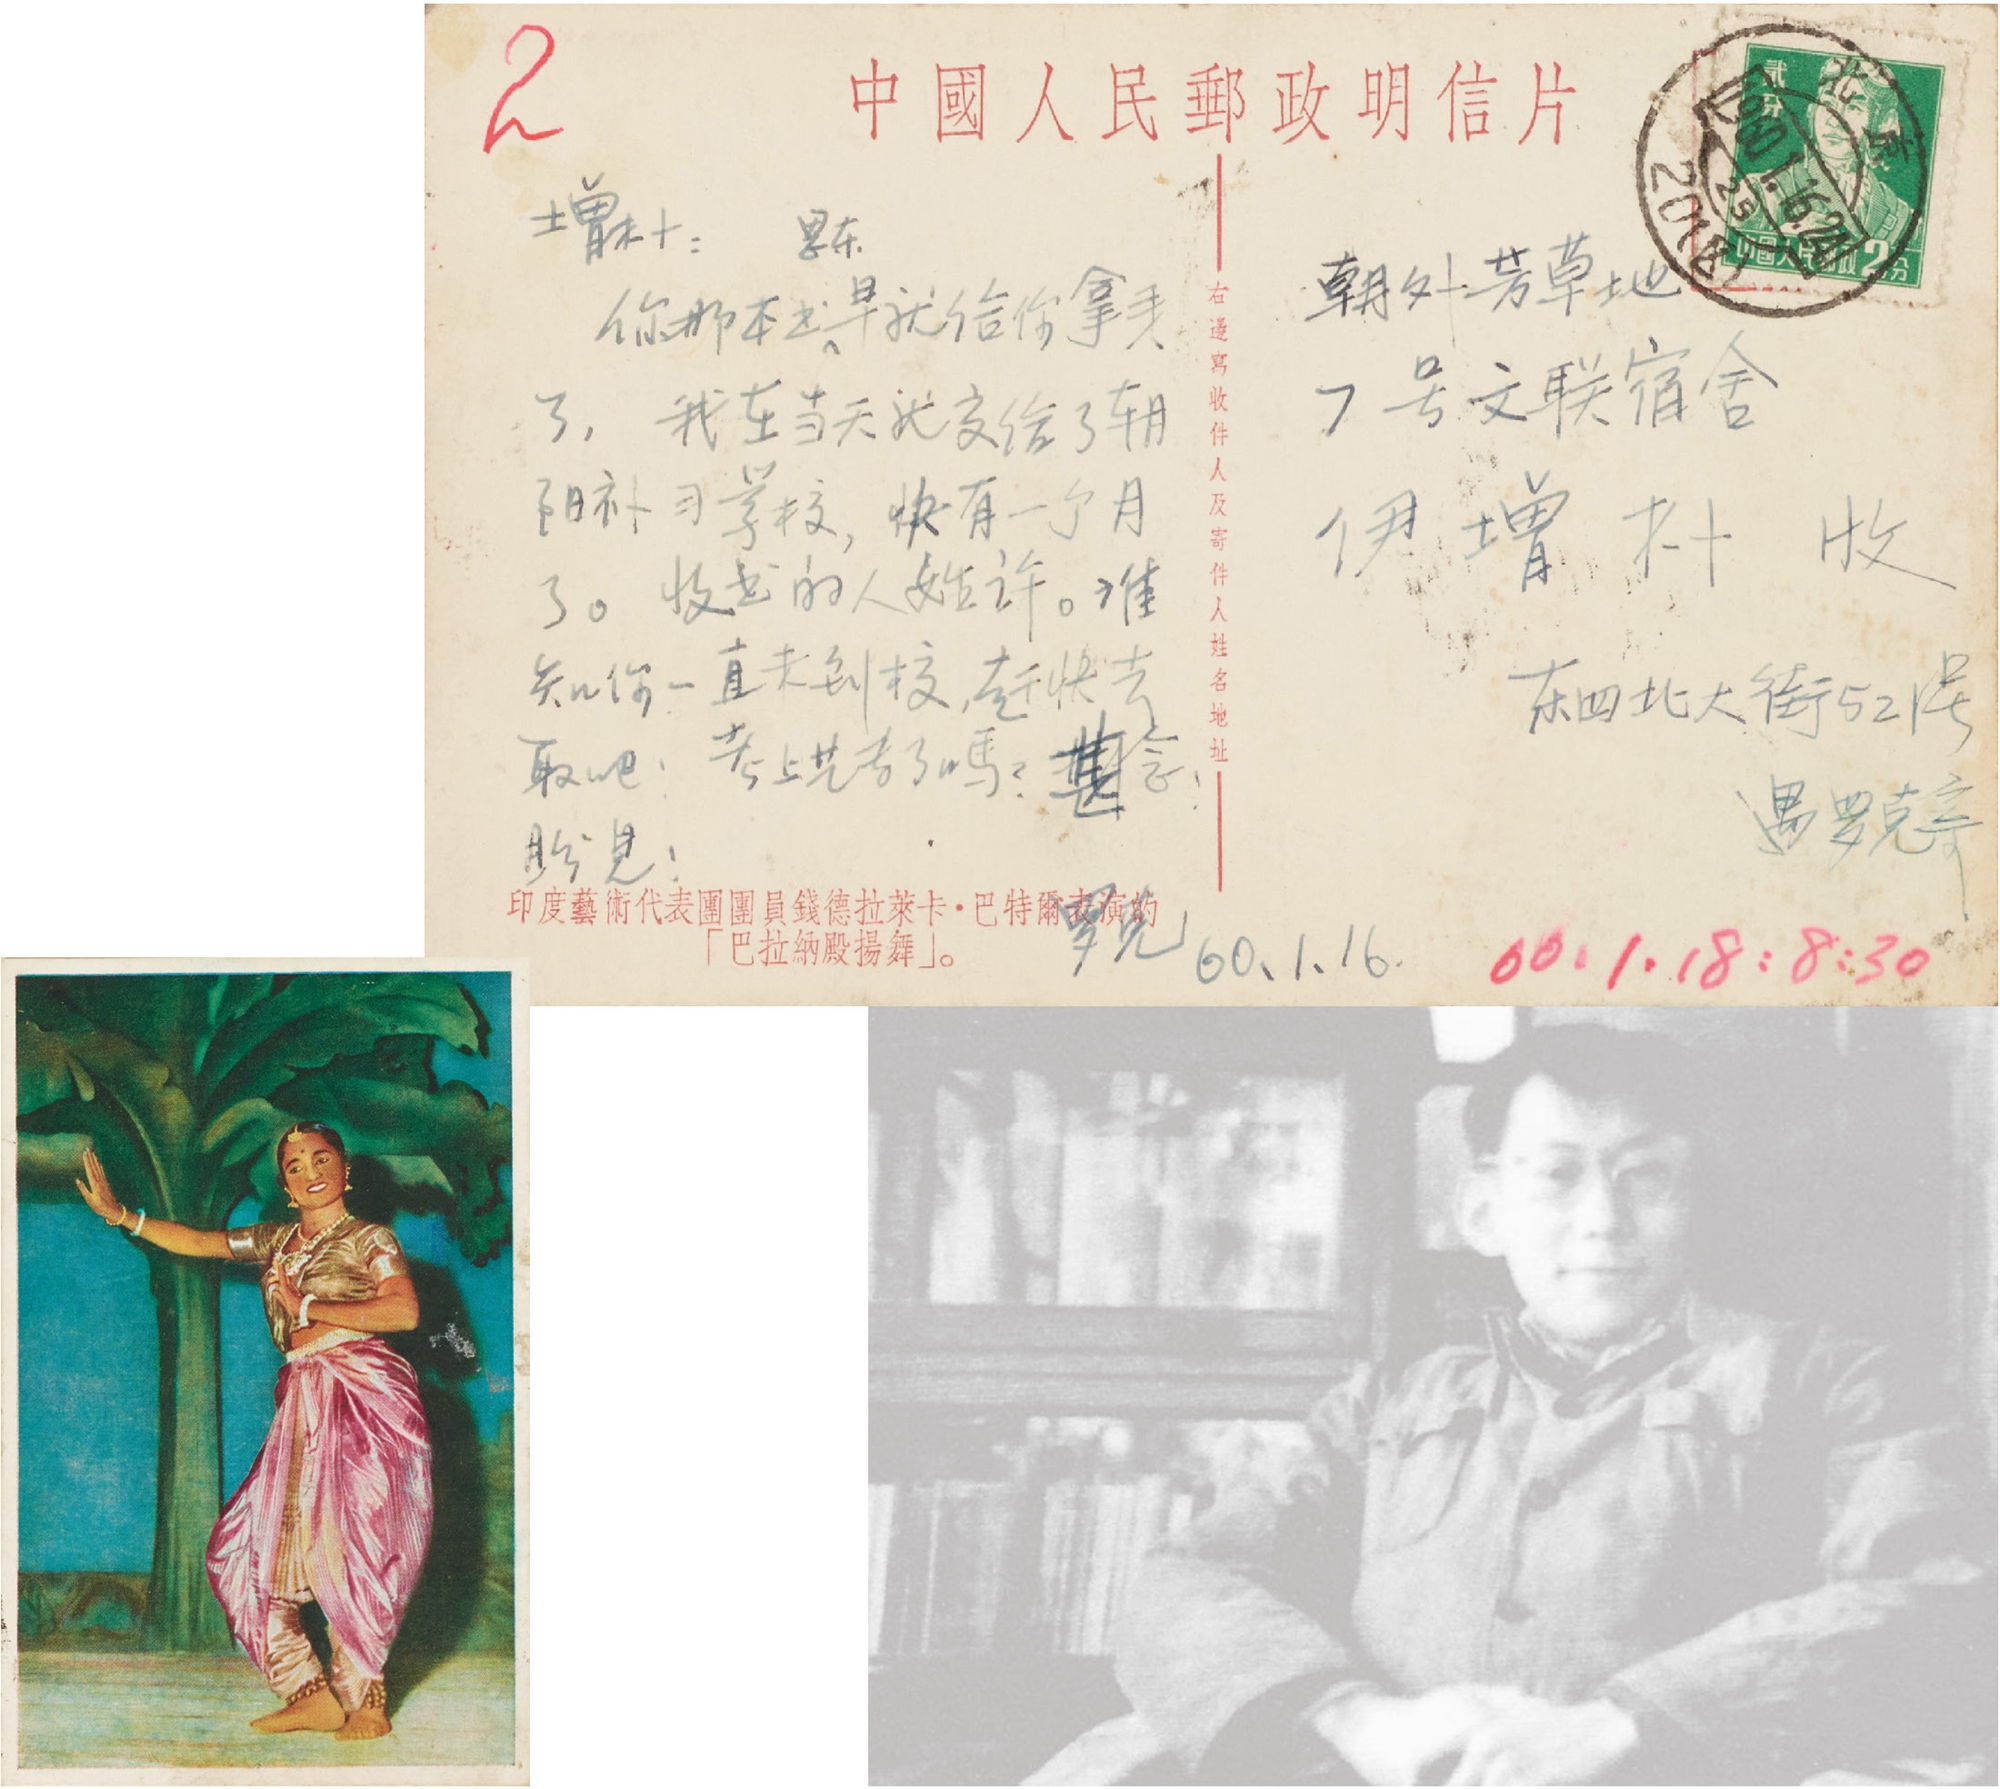 2
中國人民郵政明信片
贰分
中國人民邮政2分
北京
1960.1.16.24
25
20(支)
增朴：
思东
你那本书，早就给你拿来
了，我在当天就交给了朝
阳补习学校，快有一个月
了。收书的人姓许。谁
知你一直未到校，赶快去
取吧！考上先考了嗎？甚念！
盼見！
罗克 60.1.16.
印度藝術代表團團員錢德拉萊卡·巴特爾表演的
「巴拉納殿揚舞」。
右邊寫收件人及寄件人姓名地址
朝外芳草地
7号文联宿舍
伊增朴 收
东四北大街521号
遇罗克寄
60.1.18:8:30